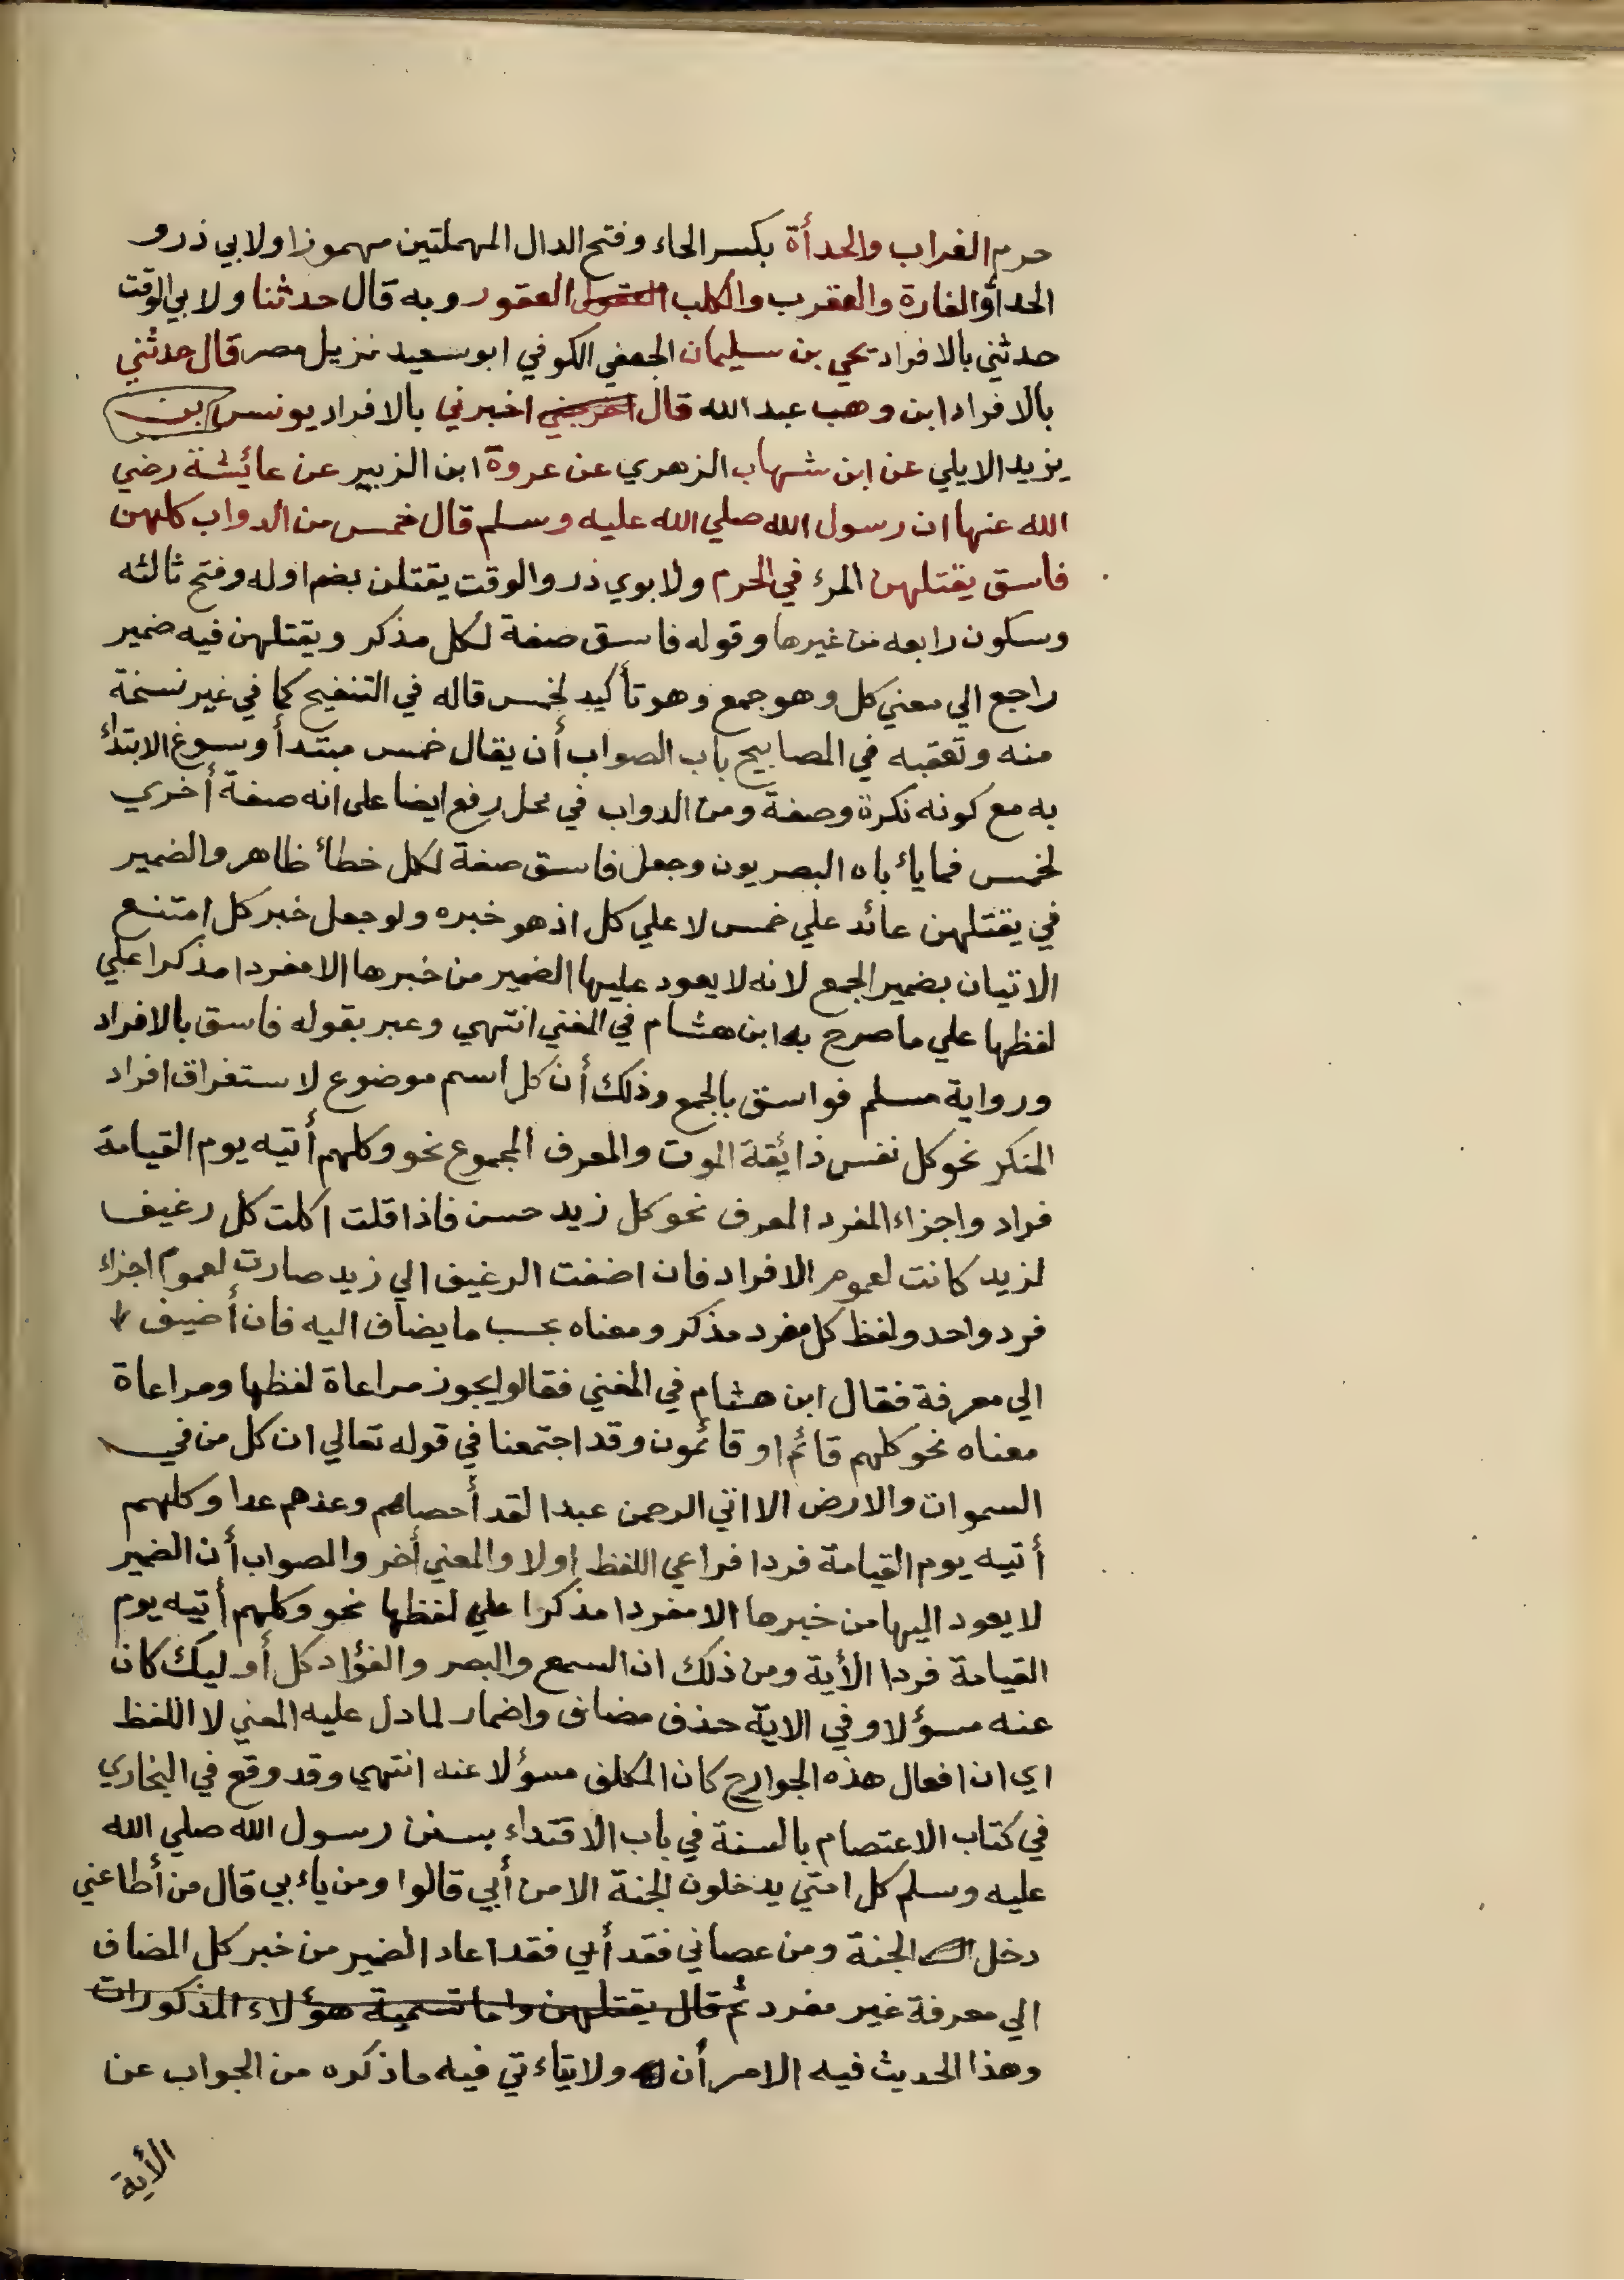 حرم الغراب والحدأة بكسر الحاء وفتح الدال المهملتين مهموزا ولابي ذر و
الحدأ والفارة والعقرب والكلب العقول العقور وبه قال حدثنا ولابي الوقت
حدثني بالافراد يحي بن سليمان الجعفي الكوفي ابو سعيد نزيل مصر قال حدثني
بالافراد ابن وهب عبد الله قال اخرجني اخبرني بالافراد يونس بن
يزيد الايلي عن ابن شهاب الزهري عن عروة ابن الزبير عن عائيشة رضي
الله عنها ان رسول الله صلي الله عليه وسلم قال خمس من الدواب كلهن
فاسق يقتلهن المرء في الحرم ولابوي ذر والوقت يقتلن بضم اوله وفتح ثالثه
وسكون رابعه من غيرها وقوله فاسق صفة لكل مذكر ويقتلهن فيه ضمير
راجع الي معني كل وهو جمع وهو تأكيد لخمس قاله في التنفيح كما في غير نسخة
منه وتعقبه في المصابيح باب الصواب أن يقال خمس مبتدأ وسوغ الابتداء
به مع كونه نكرة وصفة ومن الدواب في محل رفع ايضا على انه صفة أخري
لخمس فما يائباه البصريون وجعل فاسق صفة لكل خطائ ظاهر والضمير
في يقتلهن عائد علي خمس لا علي كل اذ هو خبره ولو جعل خبر كل امتنع
الاتيان بضمير الجمع لانه لا يعود عليها الضمير من خبرها الا مفردا مذكرا علي
لفظها علي ما صرح به ابن هشام في المغني انتهي وعبر بقوله فاسق بالافراد
ورواية مسلم فواسق بالجمع وذلك أن كل اسم موضوع لاستغراق افراد
المنكر نحو كل نفس ذائقة الموت والمعرف المجموع نحو وكلهم أتيه يوم القيامة
فراد واجزاء المفرد المعرف نحو كل زيد حسن فاذا قلت اكلت كل رغيف
لزيد كانت لعموم الافراد فان اضفت الرغيف الي زيد صارت لعموم اجزاء
فرد واحد ولفظ كل مفرد مذكر ومعناه بحسب ما يضاف اليه فان أضيف
الي معرفة فقال ابن هشام في المغني فقالوا يجوز مراعاة لفظها ومراعاة
معناه نحو كلهم قائم او قائمون وقد اجتمعنا في قوله تعالي ان كل من في
السموات والارض الا اتي الرحمن عبدا لقد أحصاهم وعدهم عدا وكلهم
أتيه يوم القيامة فردا فراعي اللفظ اولا والمعني أخر والصواب أن الضمير
لا يعود اليها من خبرها الا مفردا مذكرا علي لفظها نحو وكلهم أتيه يوم
القيامة فردا الأية ومن ذلك ان السمع والبصر والفؤاد كل أوليك كان
عنه مسؤلا وفي الاية حذف مضاف واضمار لما دل عليه المعني لا اللفظ
اي ان افعال هذه الجوارح كان المكلف مسؤلا عنه انتهي وقد وقع في البخاري
في كتاب الاعتصام بالسنة في باب الاقتداء بسنن رسول الله صلي الله
عليه وسلم كل امتي يدخلون الجنة الا من أبي قالوا ومن ياءبي قال من أطاعني
دخل الجنة ومن عصاني فقد أبي فقد اعاد الضمير من خبر كل المضاف
الي معرفة غير مفرد ثم قال يقتلهن واما تسمية هؤلاء المذكورات
وهذا الحديث فيه الامر أن ولا يتاءتي فيه ما ذكره من الجواب عن
الأية